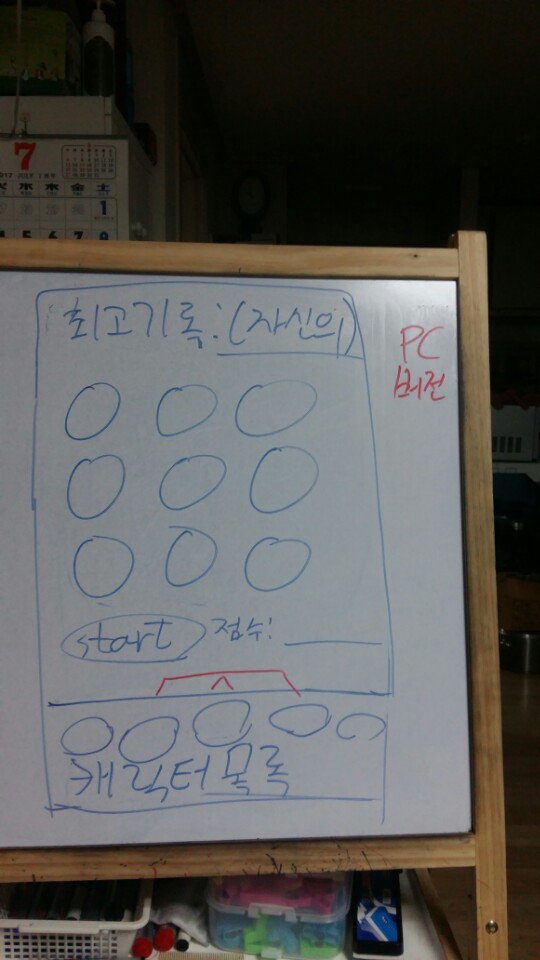 7
2017
水 木 金 土
1
4 5 6 7 8
최고기록:(자신의)
PC
버전
start 점수:
캐릭터 목록